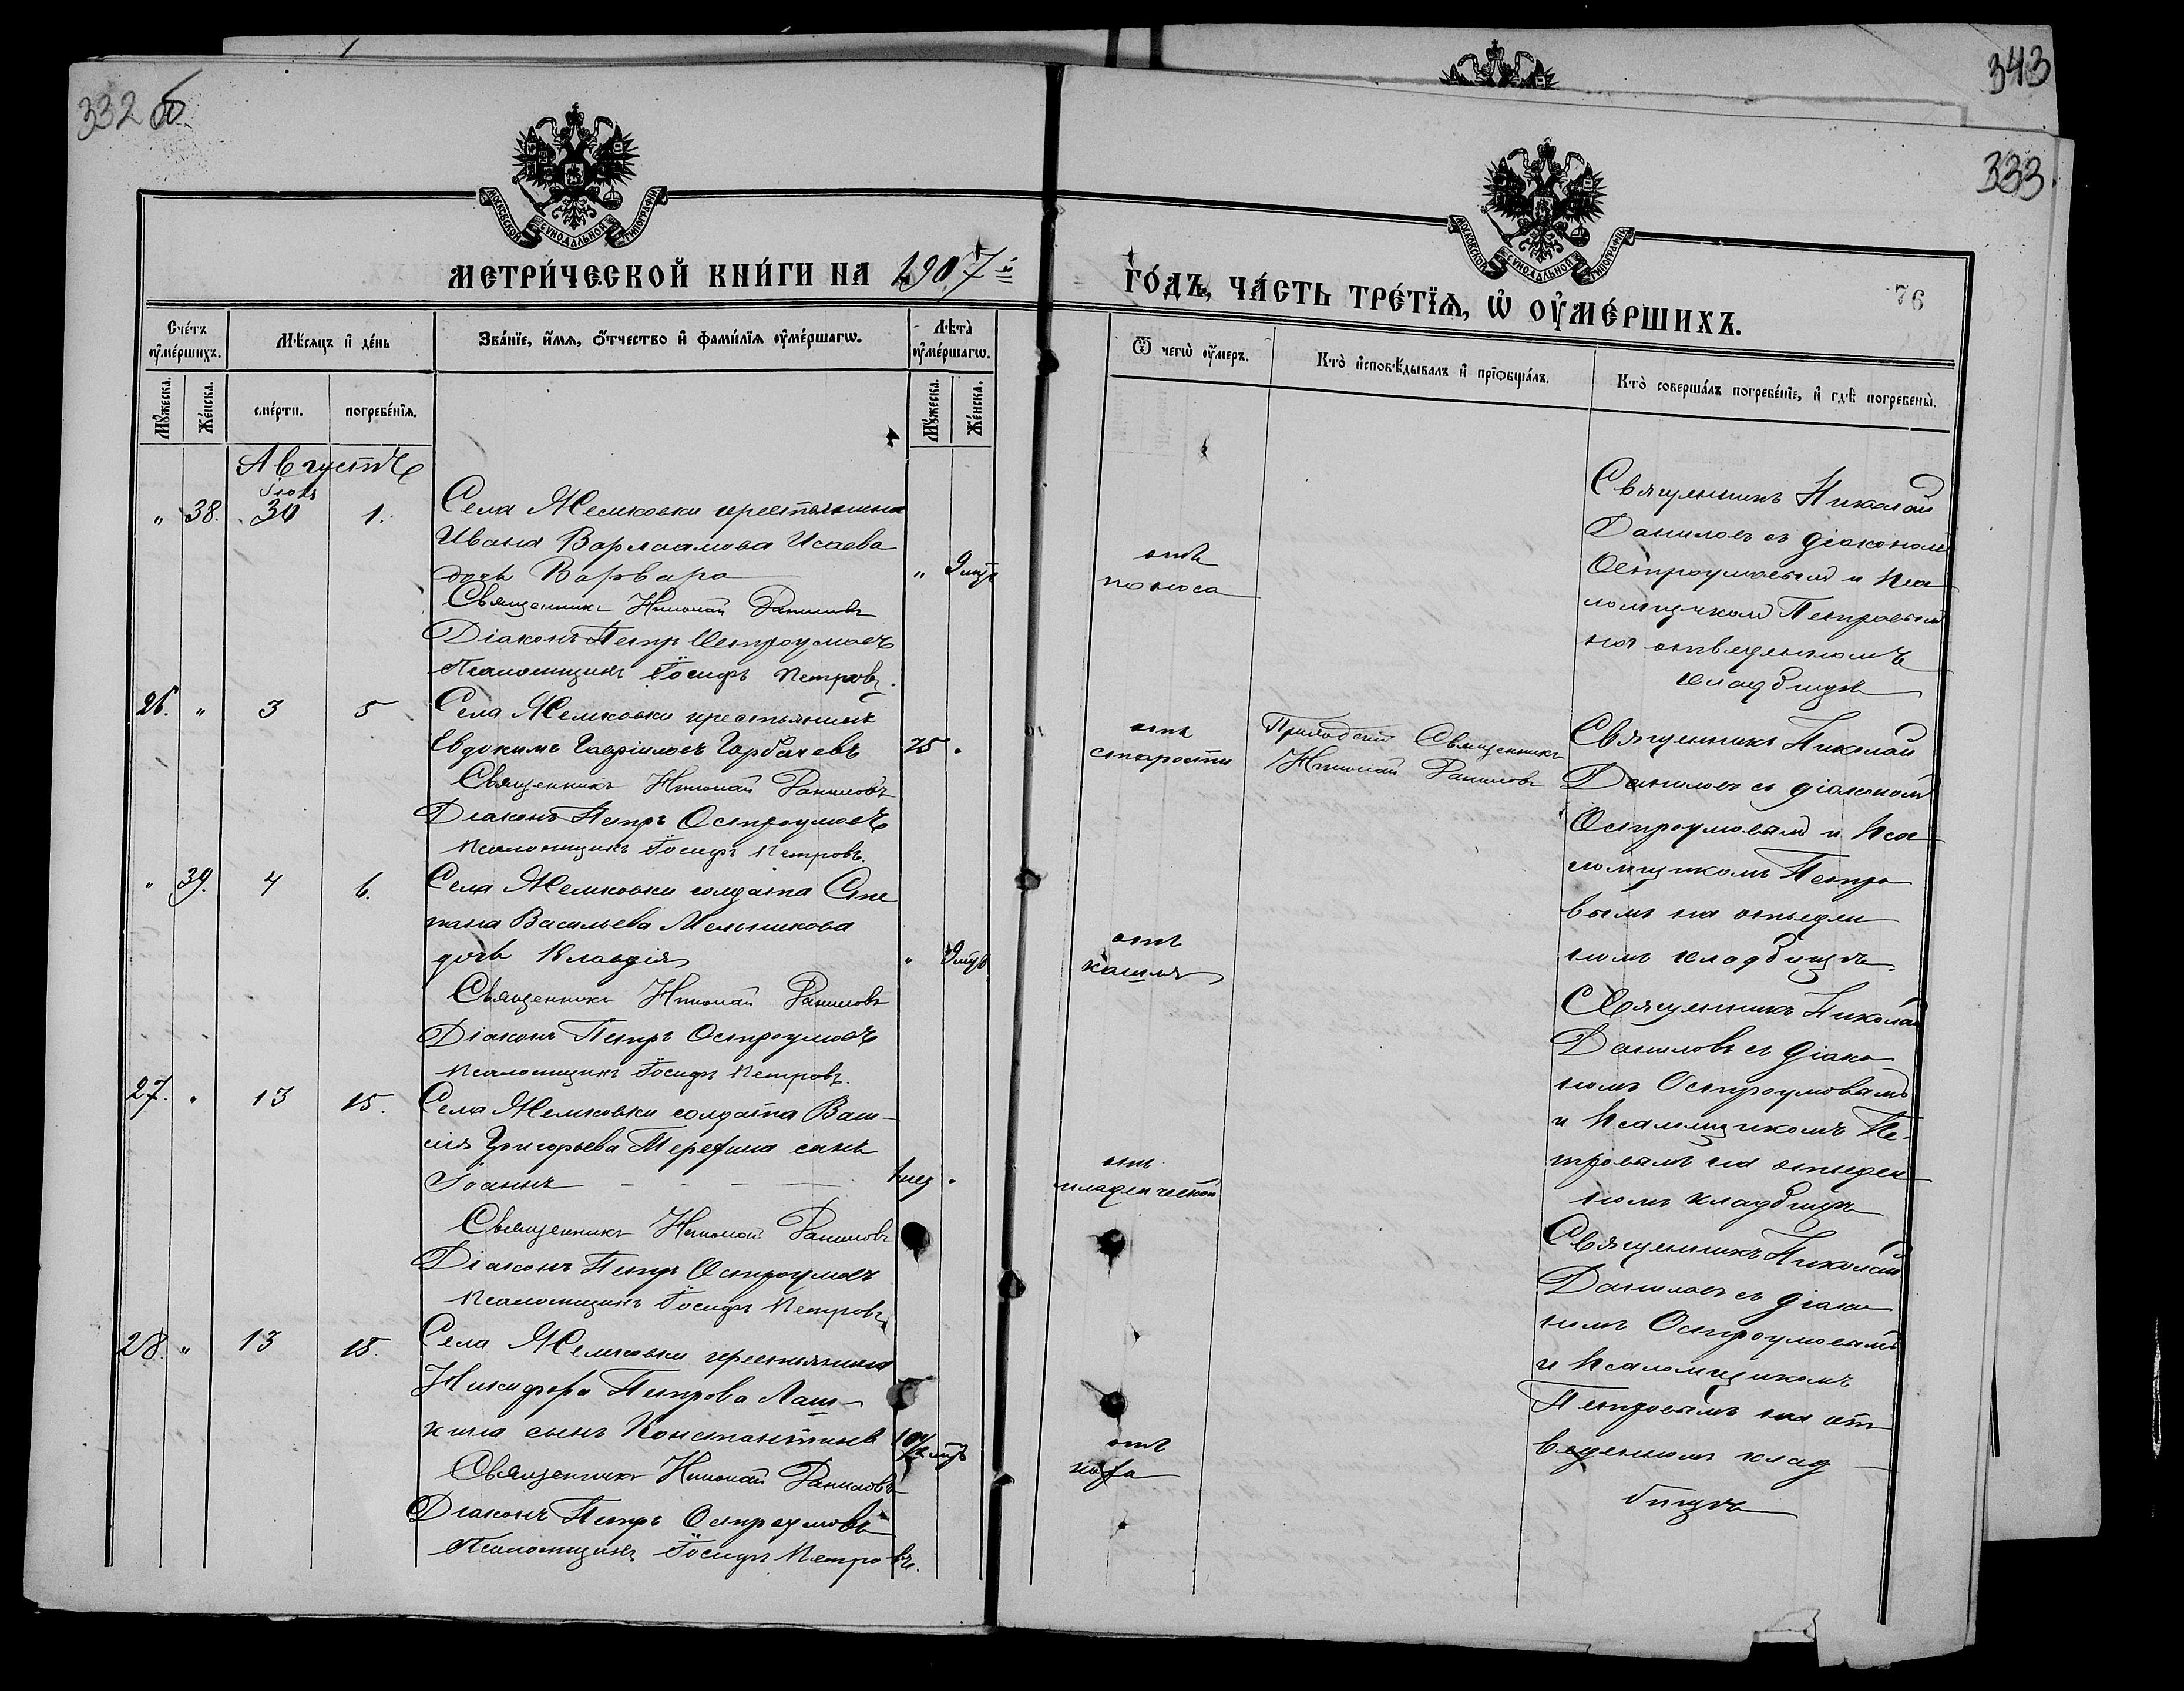 332 об
343
333.
МОСКОВСКОЙ СѴНОДАЛЬНОЙ ТИПОГРАФІИ
МОСКОВСКОЙ СѴНОДАЛЬНОЙ ТИПОГРАФІИ
МЕТРИ́ЧЕСКОЙ КНИ́ГИ НА 1907й
ГО́ДЪ, ЧА́СТЬ ТРЕ́ТЇѦ, Ѡ҆ ОУ҆МЕ́РШИХЪ.
76
Сче́тъ оу҆ме́ршихъ.
Мѣ́сѧцъ и҆ де́нь
Зва́нїе, и҆́мѧ, ѻ҆́тчество и҆ фами́лїѧ оу҆ме́ршагѡ.
Лѣта̀ оу҆ме́ршагѡ.
Ѿ чегѡ̀ оу҆́меръ.
Кто̀ и҆сповѣ́дывалъ и҆ прїѡбща́лъ.
Кто̀ соверша́лъ погребе́нїе, и҆ гдѣ̀ погребены̀.
Мꙋ́жеска.
Же́нска.
сме́рти.
погребе́нїѧ.
Мꙋ́жеска.
Же́нска.
Августъ
Іюля
" 38. 30 1.
Села Жемковки крестьянина
Ивана Варлаамова Исаева
дочь Варвара " 9 мцъ
Священникъ Николай Даниловъ
Діаконъ Петръ Остроумовъ
Псаломщикъ Іосифъ Петровъ.
отъ
поноса
Священникъ Николай
Даниловъ съ діакономъ
Остроумовымъ и Пса-
ломщикомъ Петровымъ
на отведенномъ
кладбищѣ
26. " 3 5
Села Жемковки крестьянинъ
Евдокимъ Гавріиловъ Горбачевъ 75 "
Священникъ Николай Даниловъ
Діаконъ Петръ Остроумовъ
Псаломщикъ Іосифъ Петровъ.
отъ
старости
Приходскій Священникъ
Николай Даниловъ
Священникъ Николай
Даниловъ съ діакономъ
Остроумовымъ и Пса-
ломщикомъ Петро-
вымъ на отведен-
номъ кладбищѣ
" 39. 4 6.
Села Жемковки солдата Сте-
пана Васильева Мельникова
дочь Клавдія " 9 мцъ
Священникъ Николай Даниловъ
Діаконъ Петръ Остроумовъ
Псаломщикъ Іосифъ Петровъ.
отъ
кашля
Священникъ Николай
Даниловъ съ діако-
номъ Остроумовымъ
и Псаломщикомъ Пе-
тровымъ на отведен-
номъ кладбищѣ
27. " 13 15.
Села Жемковки солдата Васи-
лія Григорьева сынъ
Іоаннъ 1 нед "
Священникъ Николай Даниловъ
Діаконъ Петръ Остроумовъ
Псаломщикъ Іосифъ Петровъ
отъ
младенческой
Священникъ Николай
Даниловъ съ діако-
номъ Остроумовымъ
и Псаломщикомъ
Петровымъ на от-
веденномъ клад-
бищѣ
28. " 13 15.
Села Жемковки крестьянина
Никифора Петрова Лаш-
кина сынъ Константинъ
Священникъ Николай Даниловъ
Діаконъ Петръ Остроумовъ
Псаломщикъ Іосифъ Петровъ.
отъ